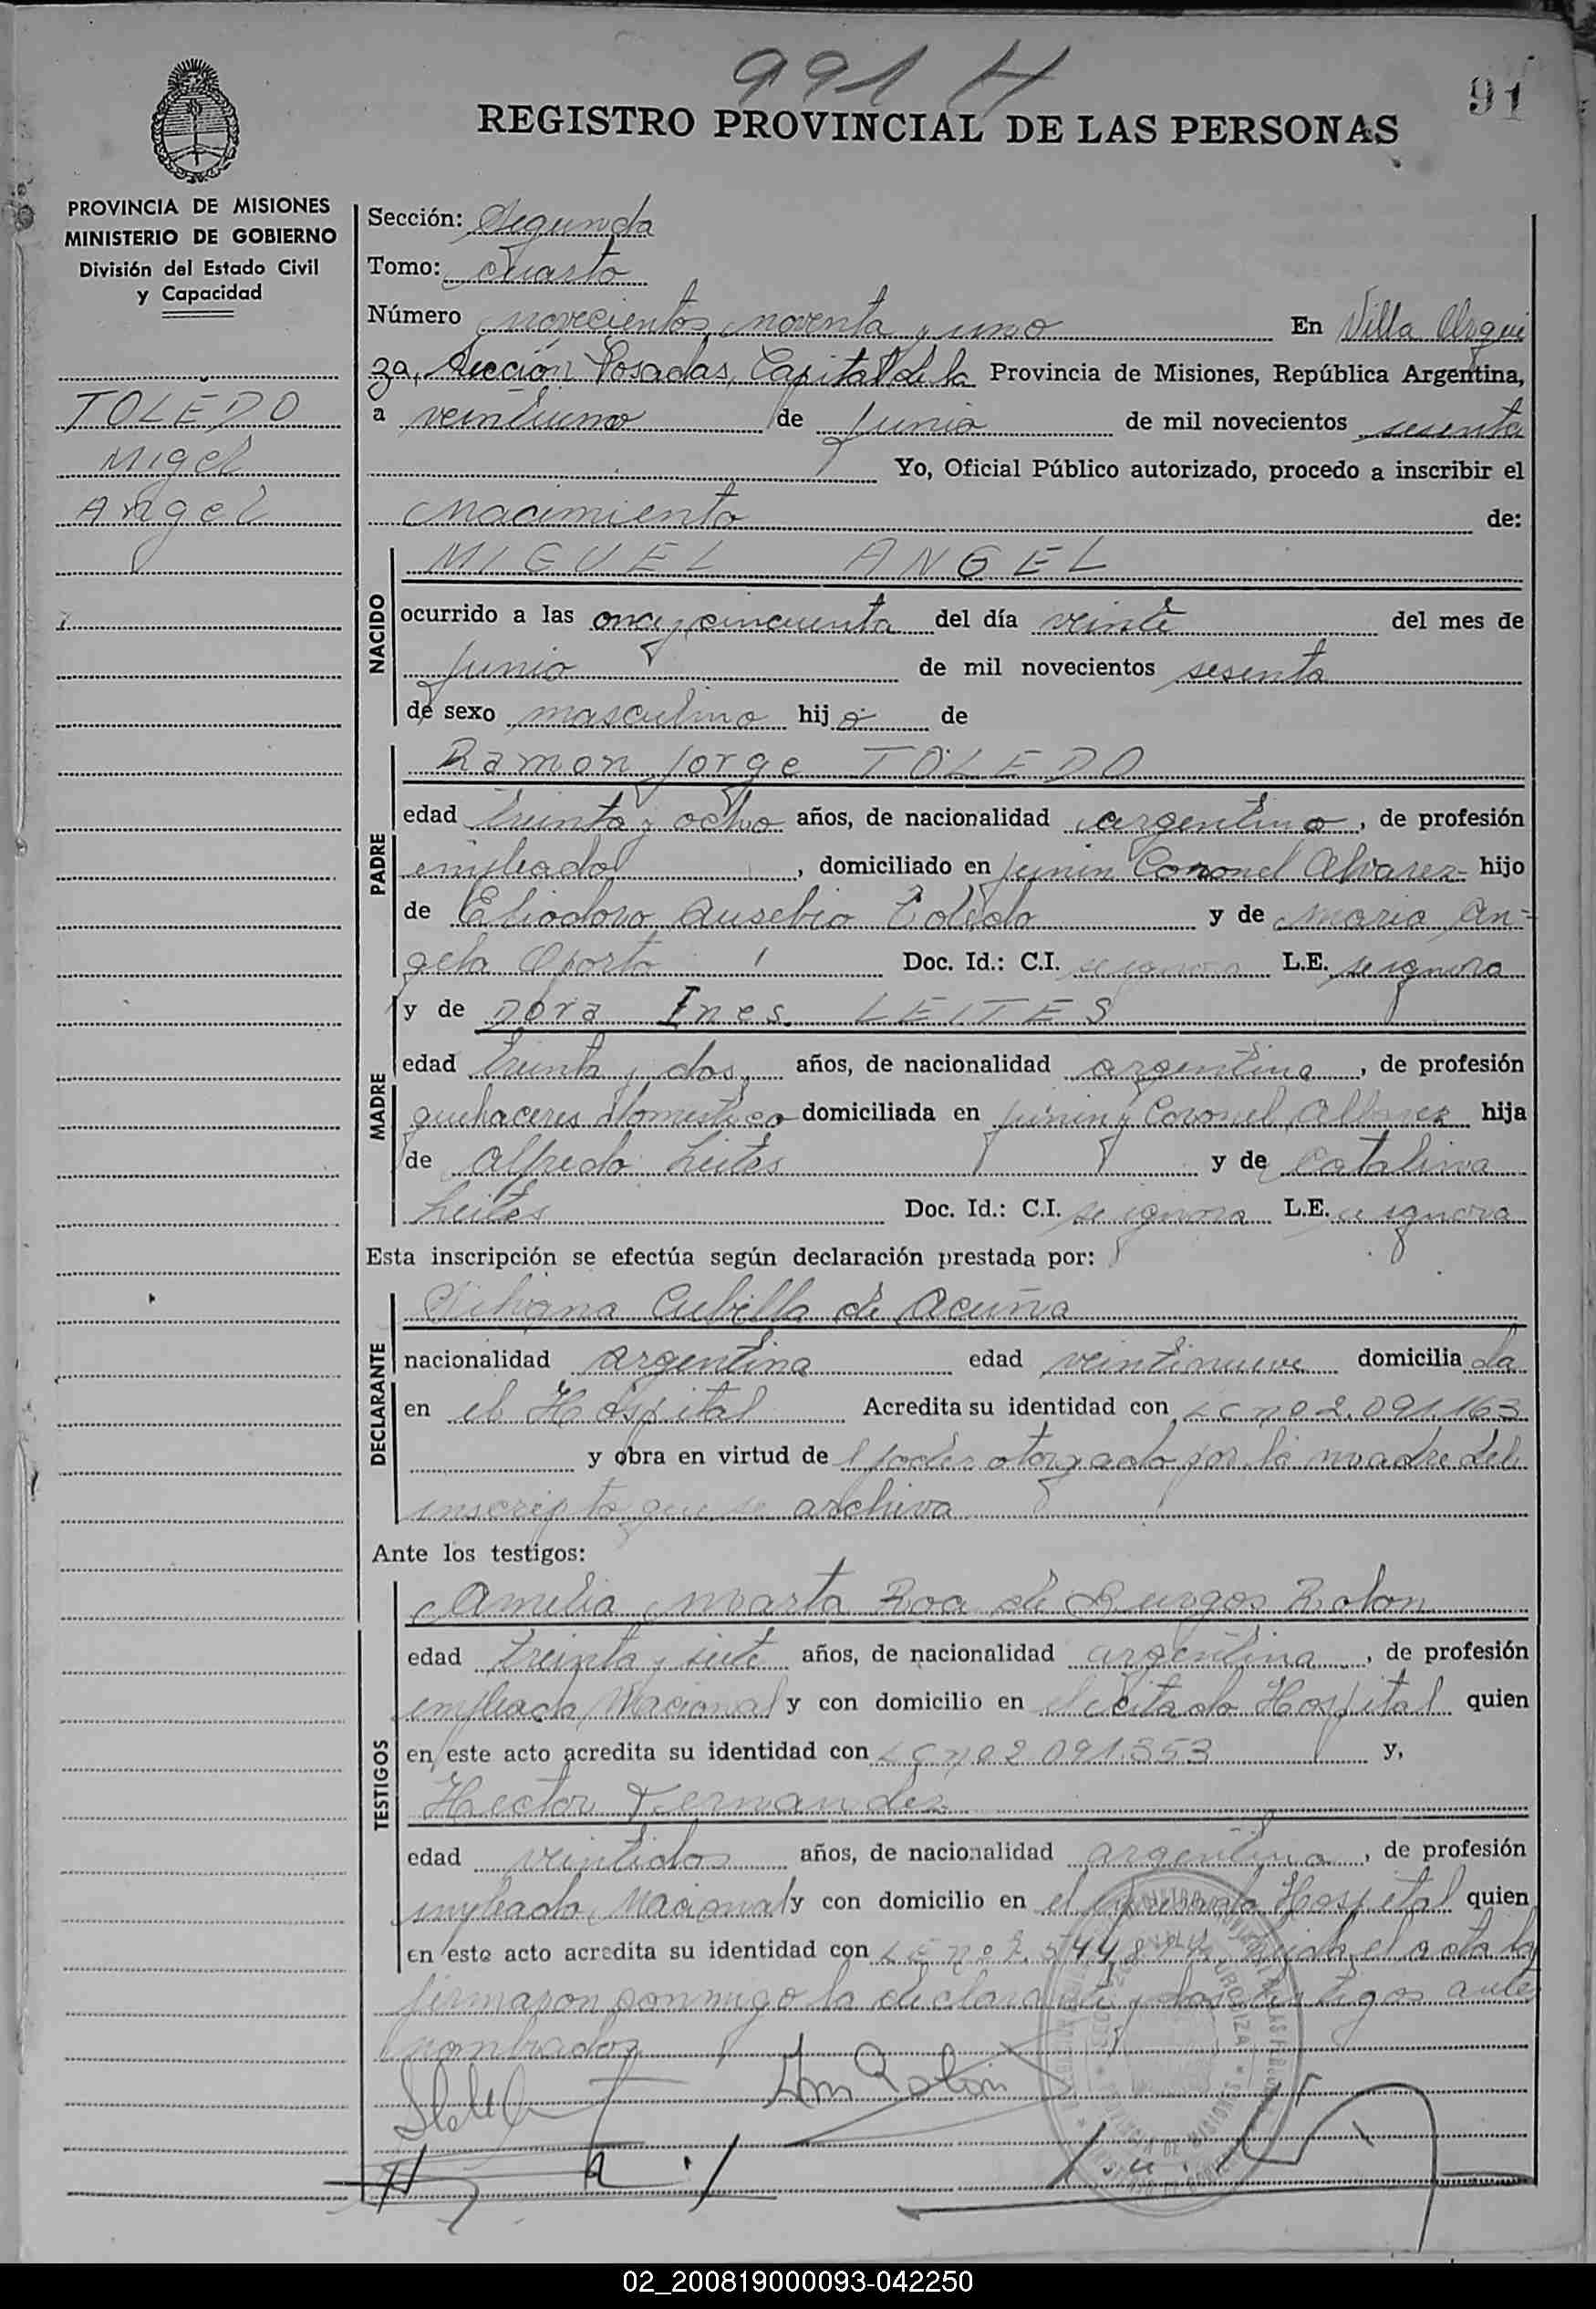 991 H
91
REGISTRO PROVINCIAL DE LAS PERSONAS
PROVINCIA DE MISIONES
MINISTERIO DE GOBIERNO
División del Estado Civil
y Capacidad
TOLEDO
Migel
Angel
Sección: Segunda
Tomo: Cuarto
Número novecientos noventa y uno En Villa Urqui
za, Sección Posadas, Capital de la Provincia de Misiones, República Argentina,
a veintiuno de junio de mil novecientos sesenta
Yo, Oficial Público autorizado, procedo a inscribir el
Nacimiento de:
NACIDO
MIGUEL ANGEL
ocurrido a las once y cincuenta del día veinte del mes de
junio de mil novecientos sesenta
de sexo masculino hijo de
PADRE
Ramon Jorge TOLEDO
edad treinta y ocho años, de nacionalidad argentino, de profesión
empleado, domiciliado en Junin Coronel Alvarez- hijo
de Eliodoro Ausebio Toledo y de Maria An-
gela Oporto Doc. Id.: C.I. se ignora L.E. se ignora
MADRE
y de Dora Ines LEITES
edad treinta y dos años, de nacionalidad argentina, de profesión
quehaceres domestico domiciliada en Junin y Coronel Albarez hija
de Alfredo Leites y de Catalina
Leites Doc. Id.: C.I. se ignora L.E. se ignora
Esta inscripción se efectúa según declaración prestada por:
DECLARANTE
Cubilla de Acuña
nacionalidad argentina edad veintinueve domiciliada
en el Hospital Acredita su identidad con LC nº 2.091.163
y obra en virtud de poder otorgado por la madre del
inscripto que se archiva
Ante los testigos:
TESTIGOS
Amelia Marta Roa de Burgos Rolon
edad treinta y siete años, de nacionalidad argentina, de profesión
empleada Nacional y con domicilio en el citado Hospital quien
en este acto acredita su identidad con LC nº 2.091.353 y,
Hector Fernandez
edad veintidos años, de nacionalidad argentino, de profesión
empleado Nacional y con domicilio en el Hospital quien
en este acto acredita su identidad con LE nº leida el acta la
firmaron conmigo la declarante y los testigos ante
nombrados
02_200819000093-042250